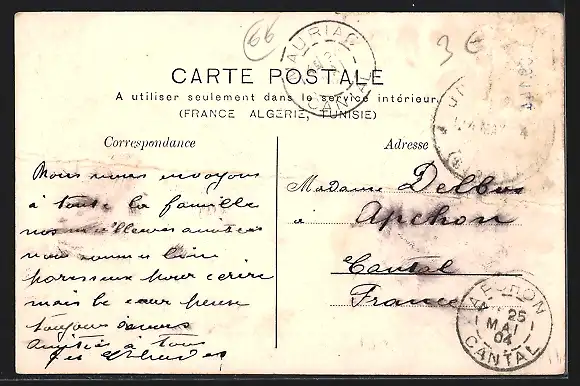 66
MAURIAC
CANTAL
3 €
CARTE POSTALE
A utiliser seulement dans le service intérieur
(FRANCE ALGERIE, TUNISIE)
Correspondance
Adresse
Nous vous envoyons
à toute la famille
nos meilleures amitiés
nous sommes bien
paresseux pour écrire
mais le cœur pense
toujours
amitiés à tous
Madame Delbos
à Apchon
Cantal
France
25
MAI
04
CANTAL